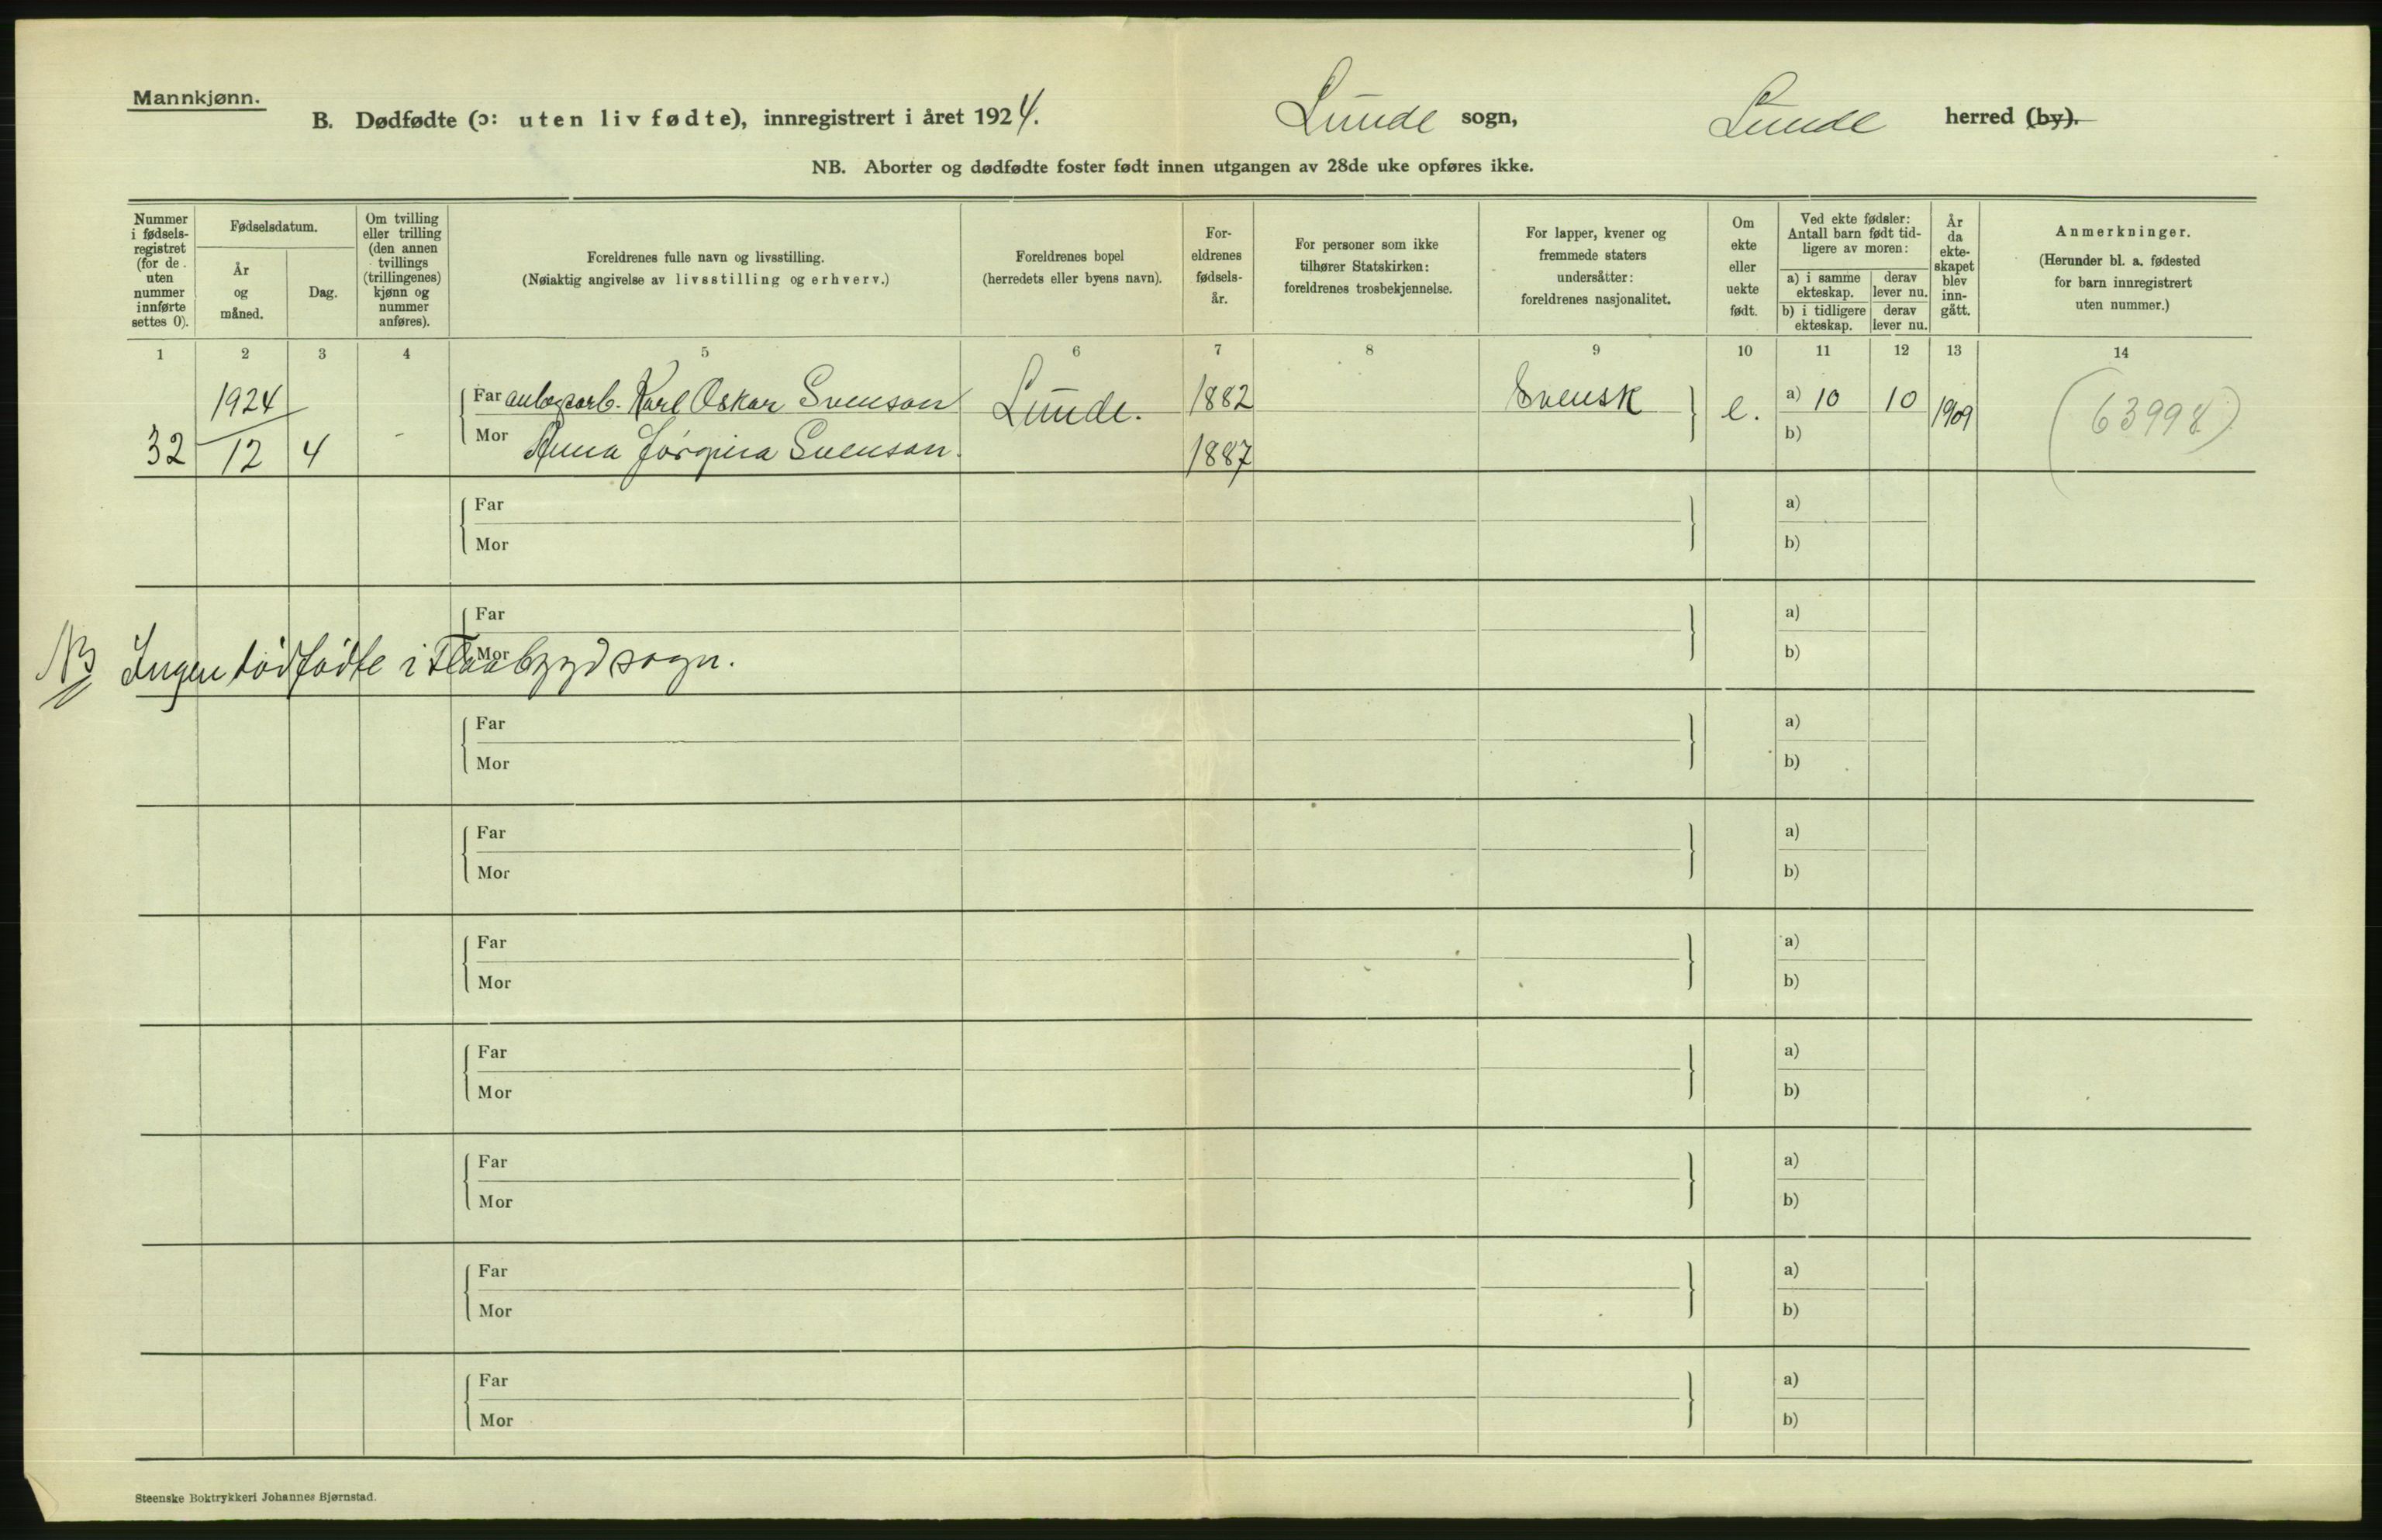 Mannkjønn.
B. Dødfødte (ɔ: uten liv fødte), innregistrert i året 1924. Lunde sogn, Lunde herred (by).
NB. Aborter og dødfødte foster født innen utgangen av 28de uke opføres ikke.
Nummer i fødsels-registret (for de uten nummer innførte settes 0).
Fødselsdatum.
År og måned.
Dag.
Om tvilling eller trilling (den annen tvillings (trillingenes) kjønn og nummer anføres).
Foreldrenes fulle navn og livsstilling.
(Nøiaktig angivelse av livsstilling og erhverv.)
Foreldrenes bopel
(herredets eller byens navn).
For-eldrenes fødsels-år.
For personer som ikke tilhører Statskirken: foreldrenes trosbekjennelse.
For lapper, kvener og fremmede staters undersåtter: foreldrenes nasjonalitet.
Om ekte eller uekte født.
Ved ekte fødsler: Antall barn født tid-ligere av moren:
a) i samme ekteskap.
derav lever nu.
b) i tidligere ekteskap.
derav lever nu.
År da ekte-skapet blev inn-gått.
Anmerkninger.
(Herunder bl. a. fødested for barn innregistrert uten nummer.)
1 2 3 4 5 6 7 8 9 10 11 12 13 14
1924 Far anlegsarb. Karl Oskar Svenson Lunde. 1882 Svensk e. a) 10 10 1909 (63998)
32 12 4 - Mor Anna Jørgina Svenson. 1887 b)
Far a)
Mor b)
Far a)
Mor b)
NB Ingen dødfødte i Flaabygd sogn.
Far a)
Mor b)
Far a)
Mor b)
Far a)
Mor b)
Far a)
Mor b)
Far a)
Mor b)
Far a)
Mor b)
Far a)
Mor b)
Steenske Boktrykkeri Johannes Bjørnstad.